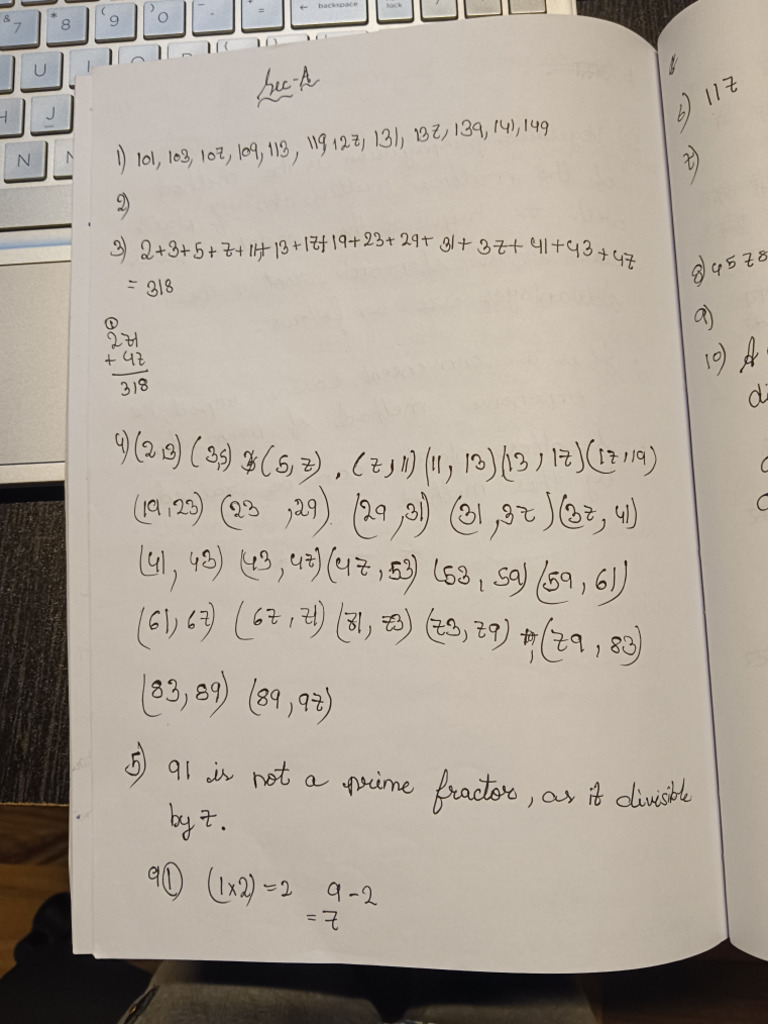 Sec-A
1) 101, 103, 107, 109, 113, 119, 127, 131, 137, 139, 141, 149
2)
3) 2+3+5+7+11+13+17+19+23+29+31+37+41+43+47
= 318
271
+ 47
318
4) (2,3) (3,5) (5,7), (7,11) (11, 13) (13, 17) (17,19)
(19,23) (23, 29) (29, 31) (31, 37) (37, 41)
(41, 43) (43, 47) (47, 53) (53, 59) (59, 61)
(61, 67) (67, 71) (71, 73) (73, 79), (79, 83)
(83, 89) (89, 97)
5) 91 is not a prime fractor, as it divisible
by 7.
91 (1×2) = 2 9-2
= 7
6) 117
7)
8) 4578
9)
10) A
di
7
8
9
0
-
+
=
← backspace
lock
U
I
O
P
H
J
N